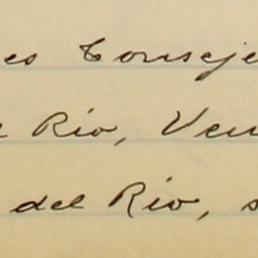 es Conseje
Río, Ven
del Río, s